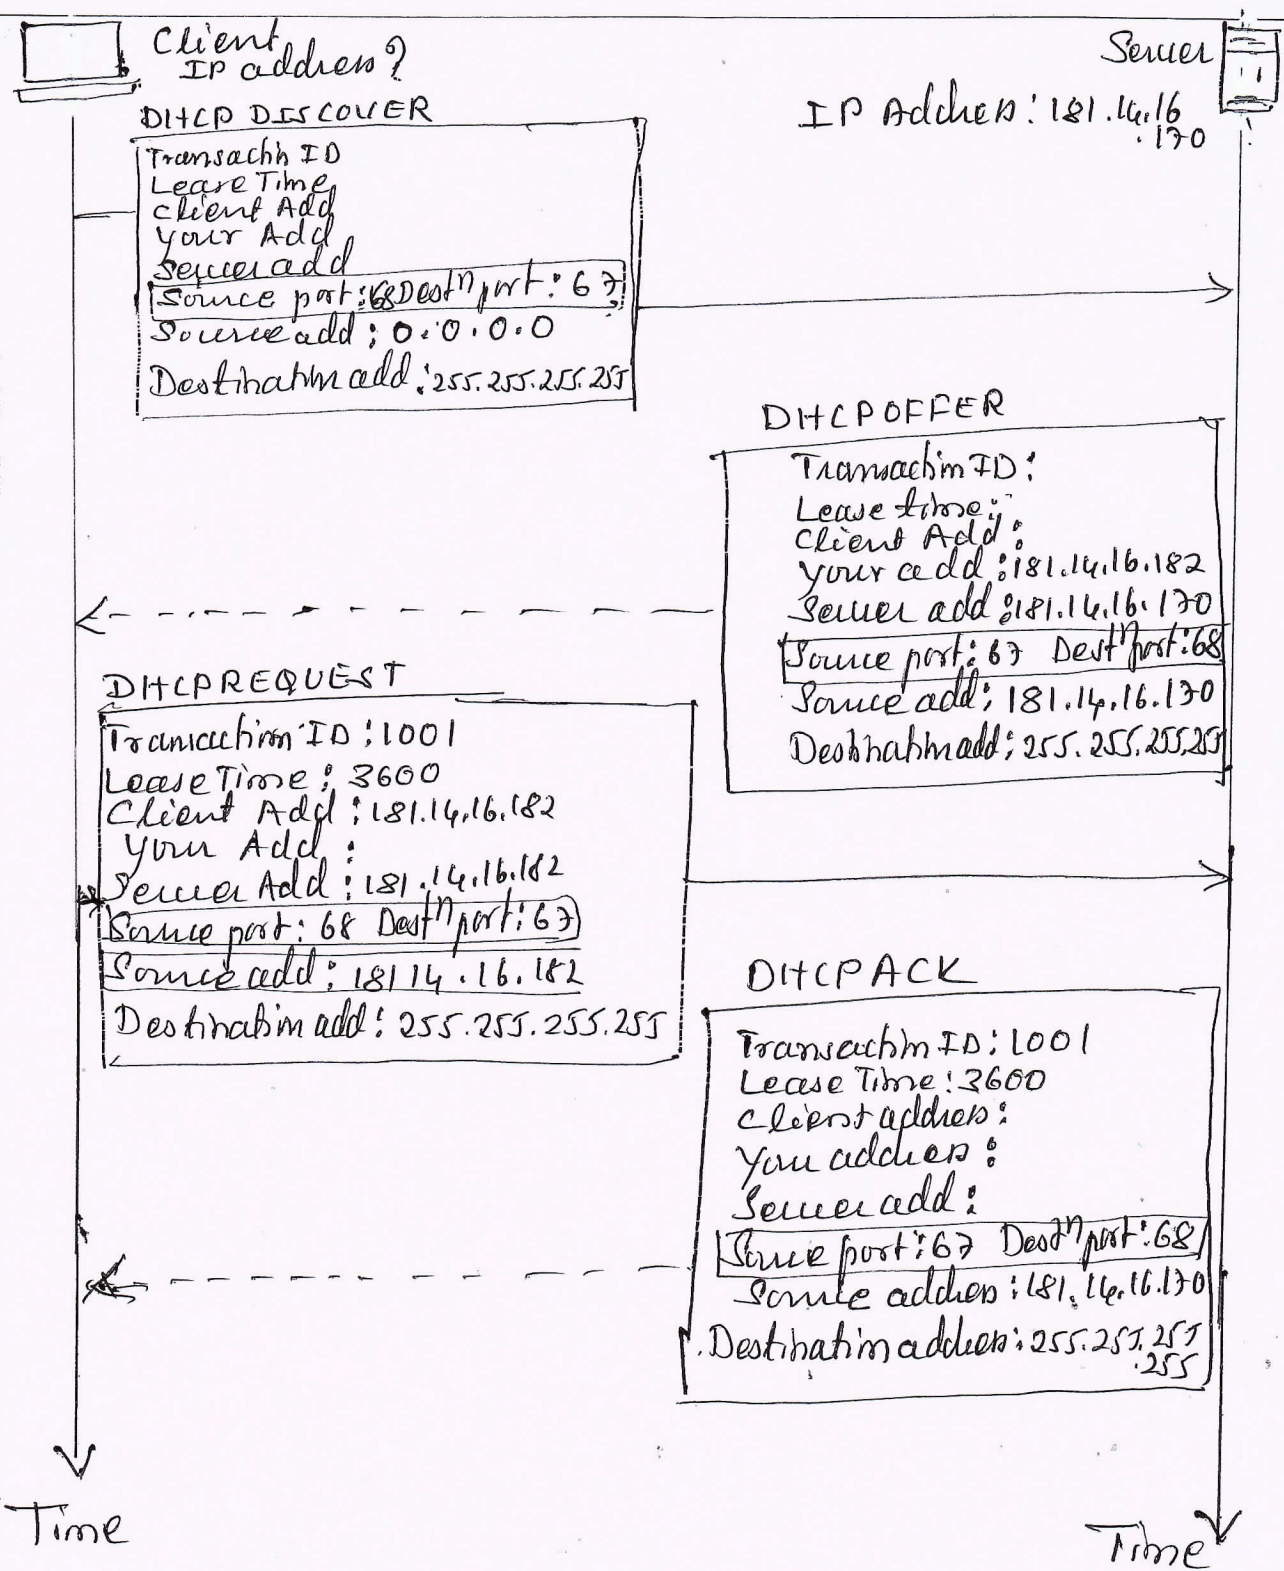 Client
IP address?
Server
IP Address: 181.14.16
.170
DHCP DISCOVER
Transactn ID
Lease Time
Client Add
Your Add
Server add
Source port: 68 Destn port: 67
Source add: 0.0.0.0
Destination add: 255.255.255.255
DHCPOFFER
Transaction ID:
Lease time:
Client Add:
Your add: 181.14.16.182
Server add: 181.14.16.170
Source port: 67 Destn port: 68
Source add: 181.14.16.170
Destination add: 255.255.255.255
DHCPREQUEST
Transaction ID: 1001
Lease Time: 3600
Client Add: 181.14.16.182
Your Add:
Server Add: 181.14.16.182
Source port: 68 Destn port: 67
Source add: 18114.16.182
Destination add: 255.255.255.255
DHCPACK
Transaction ID: 1001
Lease Time: 3600
Client address:
Your address:
Server add:
Source port: 67 Destn port: 68
Source address: 181.14.16.170
Destination address: 255.255.255
.255
Time
Time